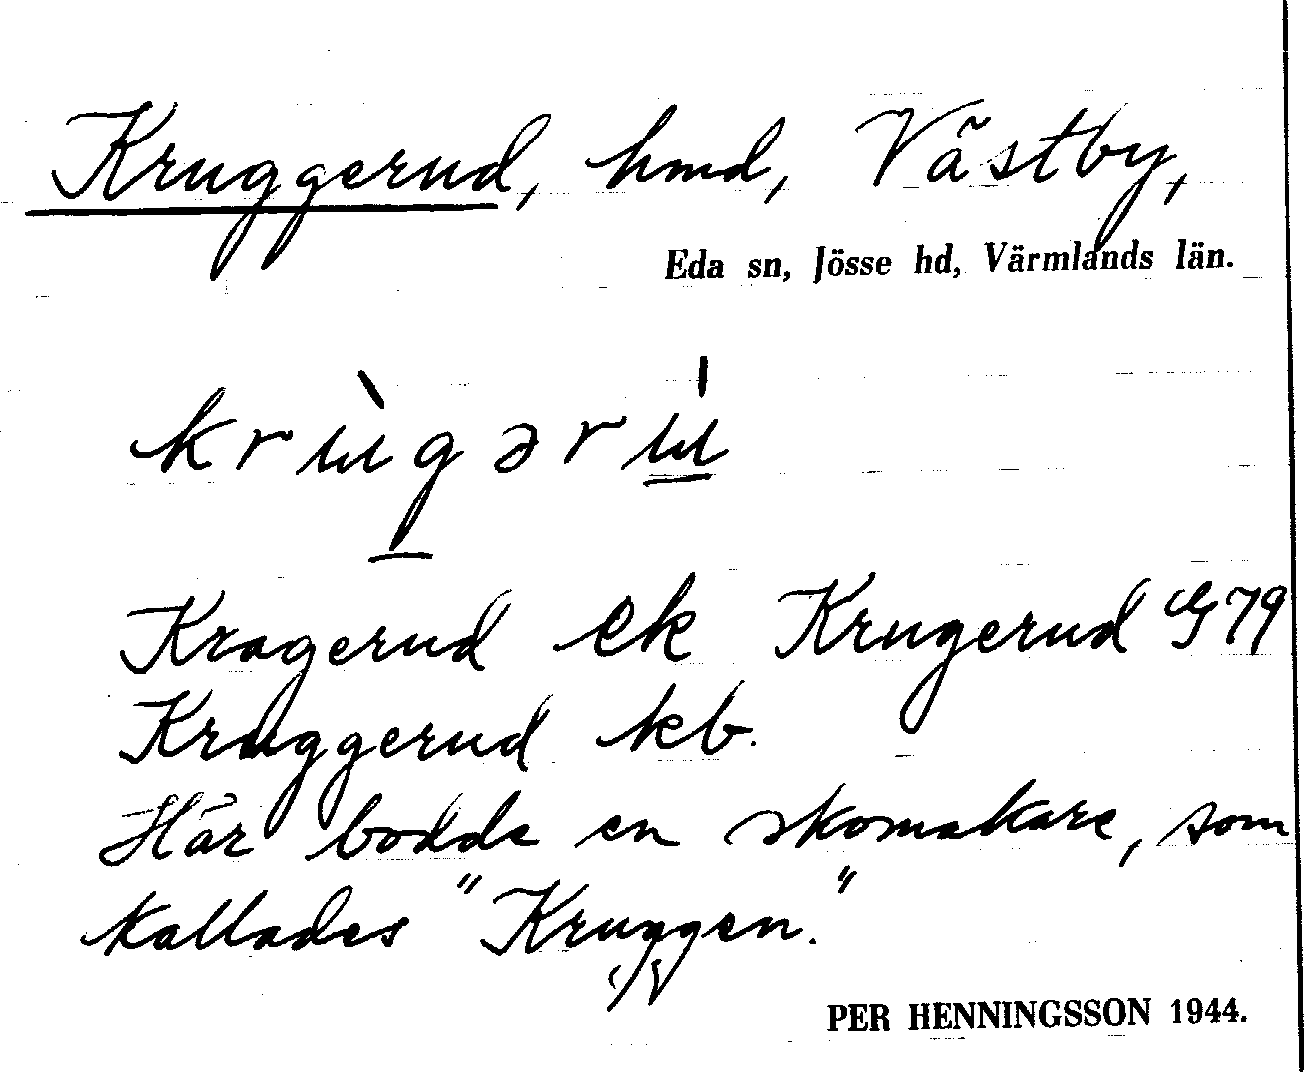 Kruggerud, hmd, Västby,
Eda sn, Jösse hd, Värmlands län.
krɯ̀gərɯ́
Kragerud ek Krugerud G 79
Kruggerud kb.
Här bodde en skomakare, som
kallades "Kruggen."
PER HENNINGSSON 1944.